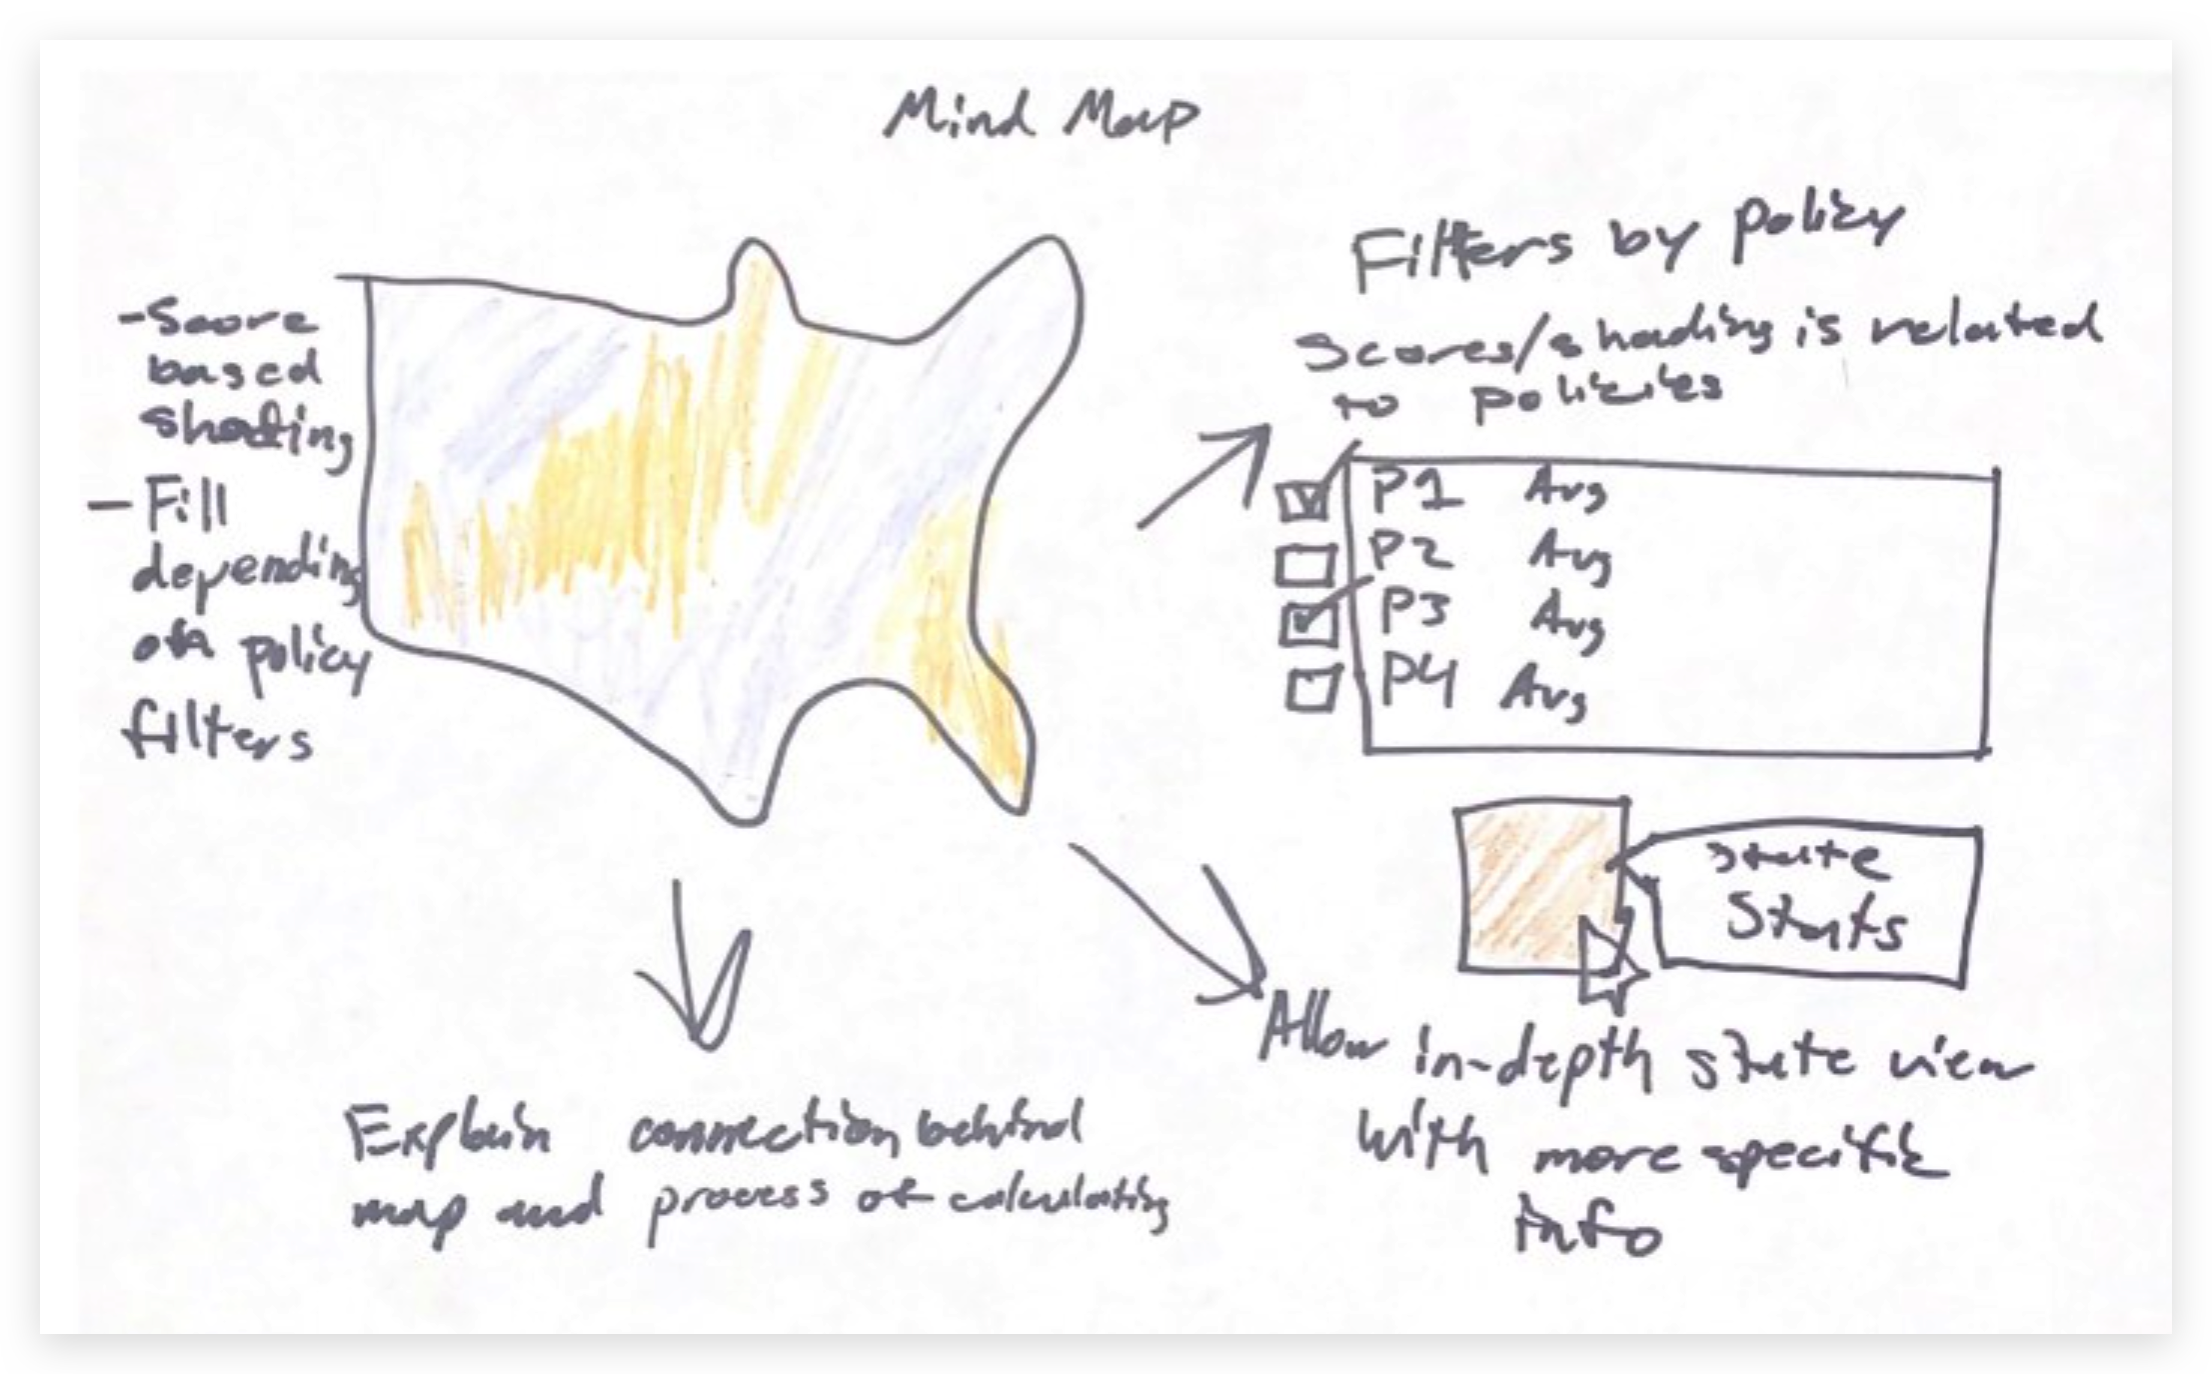 Mind Map
- Score
based
shading
- Fill
depending
on policy
filters
Filters by policy
Scores/shading is related
to policies
P1 Avg
P2 Avg
P3 Avg
P4 Avg
State
Stats
Allow in-depth state view
with more specific
info
Explain connection behind
map and process of calculating